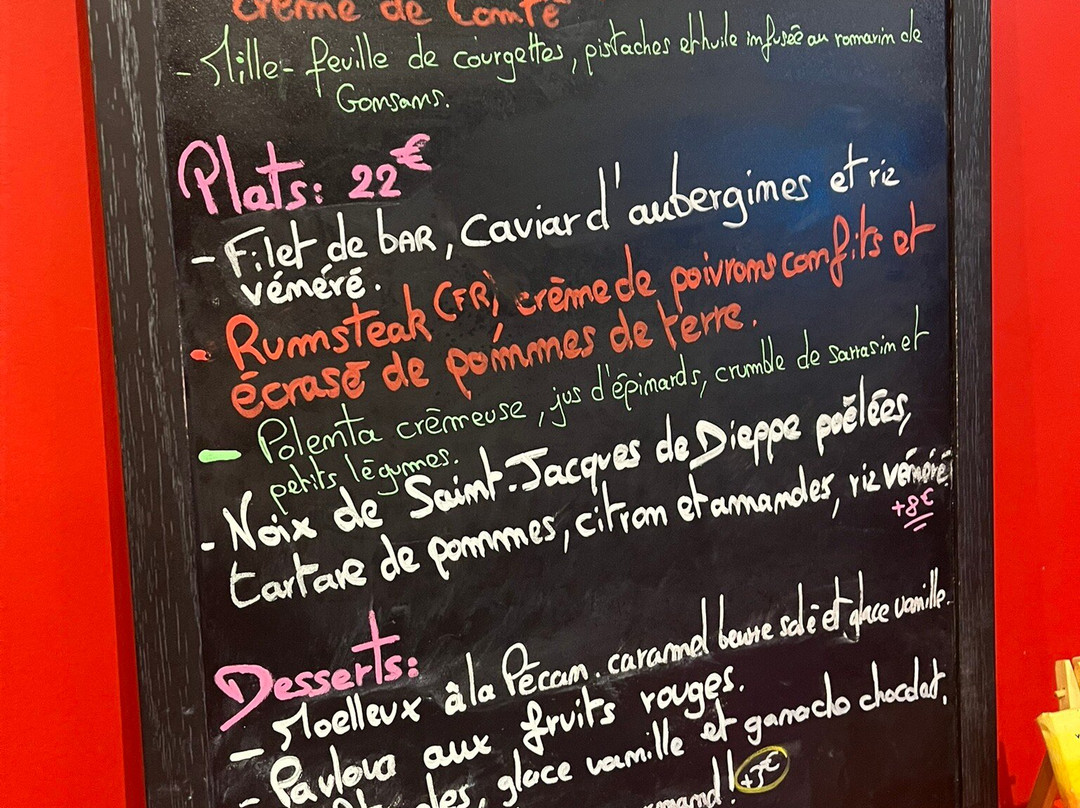 Crème de Comté
- Mille-feuille de courgettes, pistaches et huile infusée au romarin de
Gonsans.
Plats: 22€
- Filet de bAR, Caviar d'aubergines et riz
vénéré.
- Rumsteak (FR) crème de poivrons confits et
écrasé de pommes de terre.
- Polenta crémeuse, jus d'épinards, crumble de sarrasin et
petits légumes.
- Noix de Saint-Jacques de Dieppe poêlées,
tartare de pommes, citron et amandes, riz vénéré
+8€
Desserts:
- Moelleux à la Pécan. caramel beurre salé et glace vanille.
- Pavlova aux fruits rouges.
glace vanille et ganache chocolat.